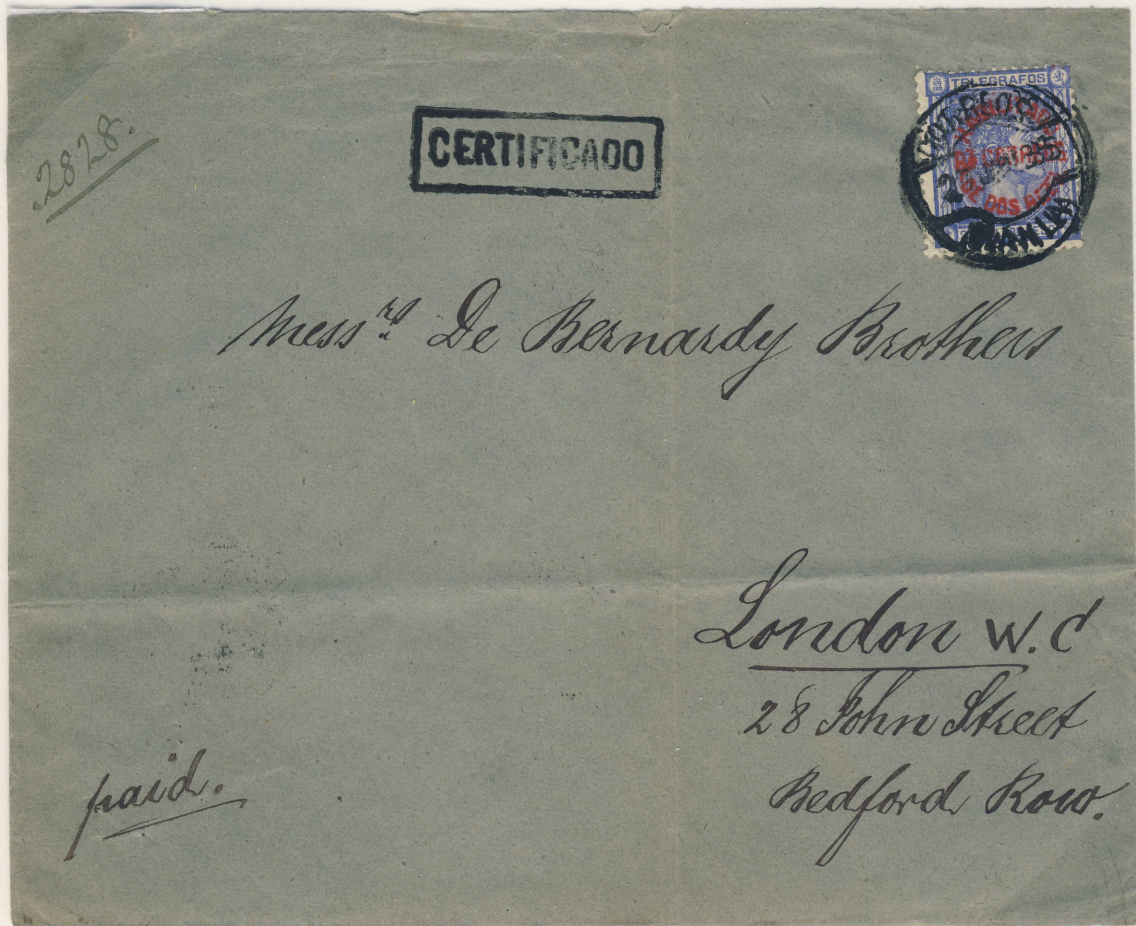 2828.
CERTIFICADO
TELEGRAFOS
CORREOS
MANILA
Mess.rs De Bernardy Brothers
London W.C
28 John Street
Bedford Row.
paid.